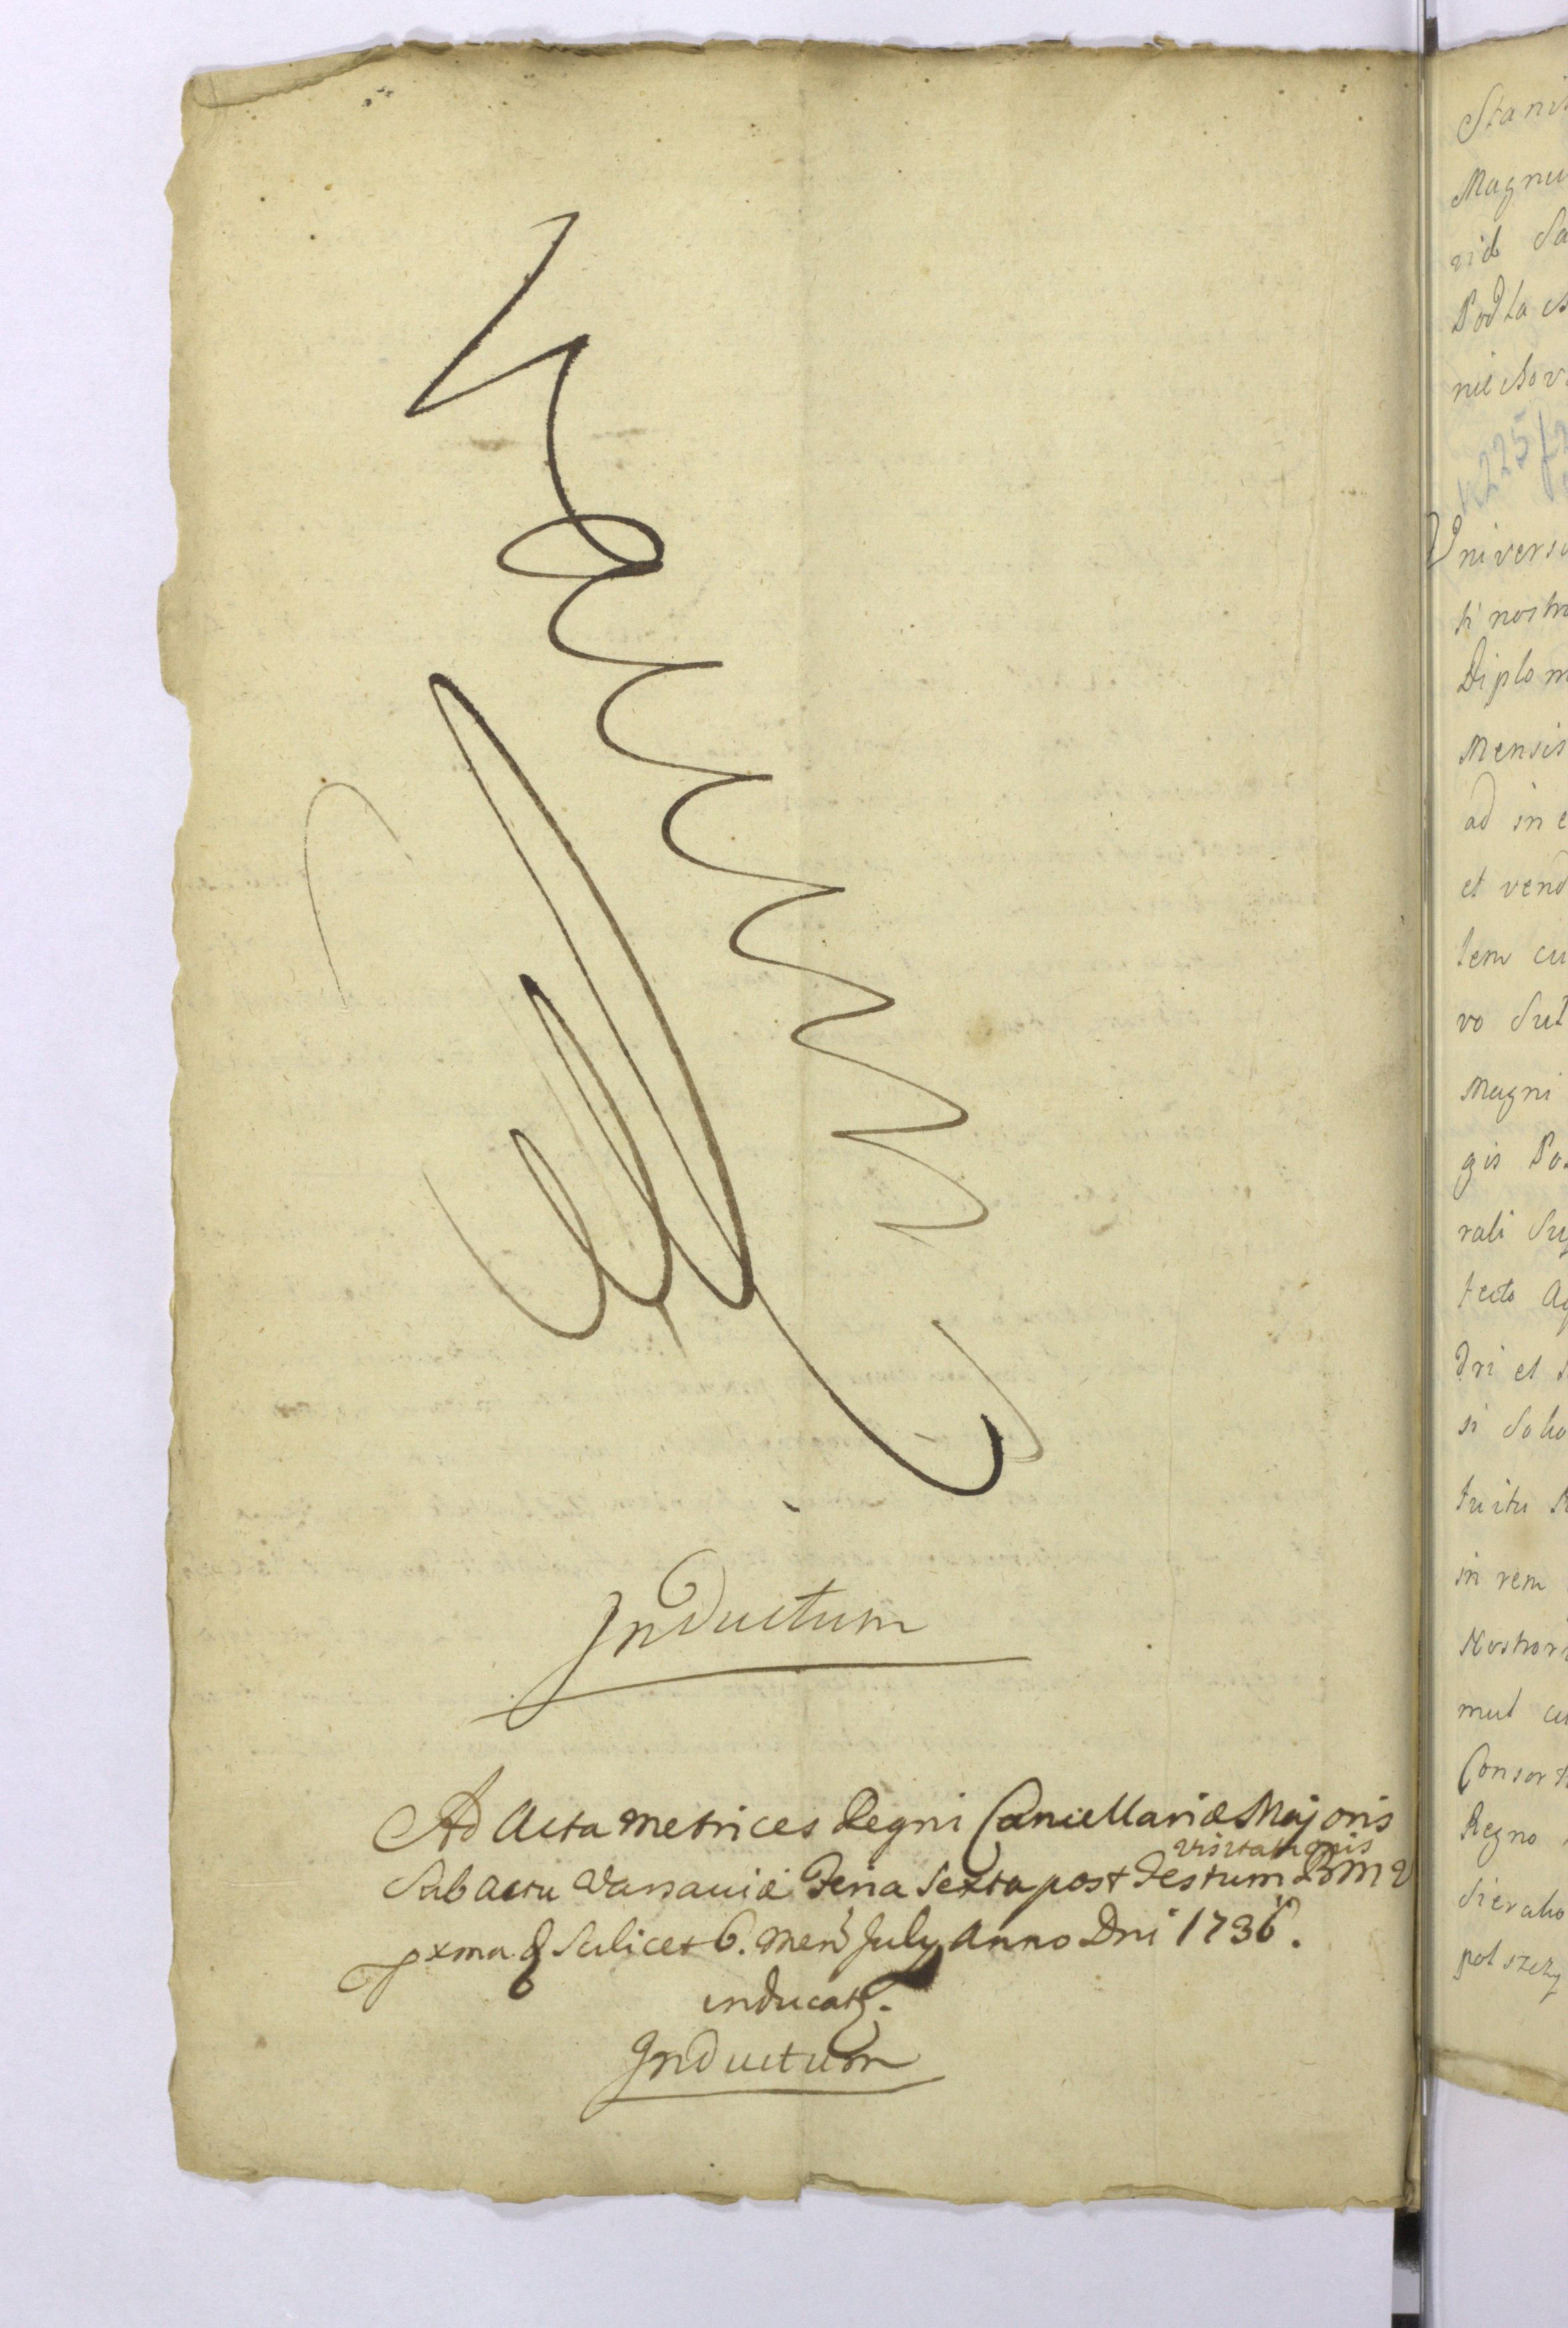 Inductum
Ad Acta Metrices Regni Cancellariæ Majoris
visitationis
Sub actu Varsaviæ Feria Sexta post Festum B M V
pxma q scilicet 6. mens July Anno Dni 1736.
inducatq.
Inductum
Stanis
Magnu
rid Sa
Podlach
nie chov
K225
Universi
ti nostro
Diplom
Mensis
ad in e
et vend
tem cu
vo Sut
Magni
gis Po
rali Sup
tecto Ag
dri et s
si Soko
tuitu
in rem
Nostror
mus cu
Consort
Regno
Sierako
pot szczy